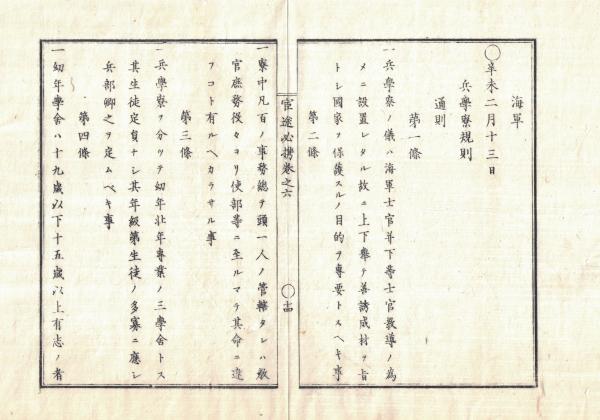 海軍
○辛未二月十三日
兵學寮規則
通則
第一條
一兵學寮ノ儀ハ海軍士官并下等士官教導ノ為
メニ設置レタル故ニ上下擧テ善誘成材ヲ旨
トシ國家ヲ保護スルノ目的ヲ專要トスヘキ事
第二條
官途必携卷之六
一寮中凡百ノ事務總テ頭一人ノ管轄タレハ教
官庶務役々ヨリ使部等ニ至ルマテ其命ニ違
フコト有ルヘカラサル事
第三條
一兵學寮ヲ分ツテ幼年壯年專業ノ三學舎トス
其生徒定員ナシ其年級第生徒ノ多寡ニ應シ
兵部卿之ヲ定ムヘキ事
第四條
一幼年學舎ハ十九歳以下十五歳以上有志ノ者